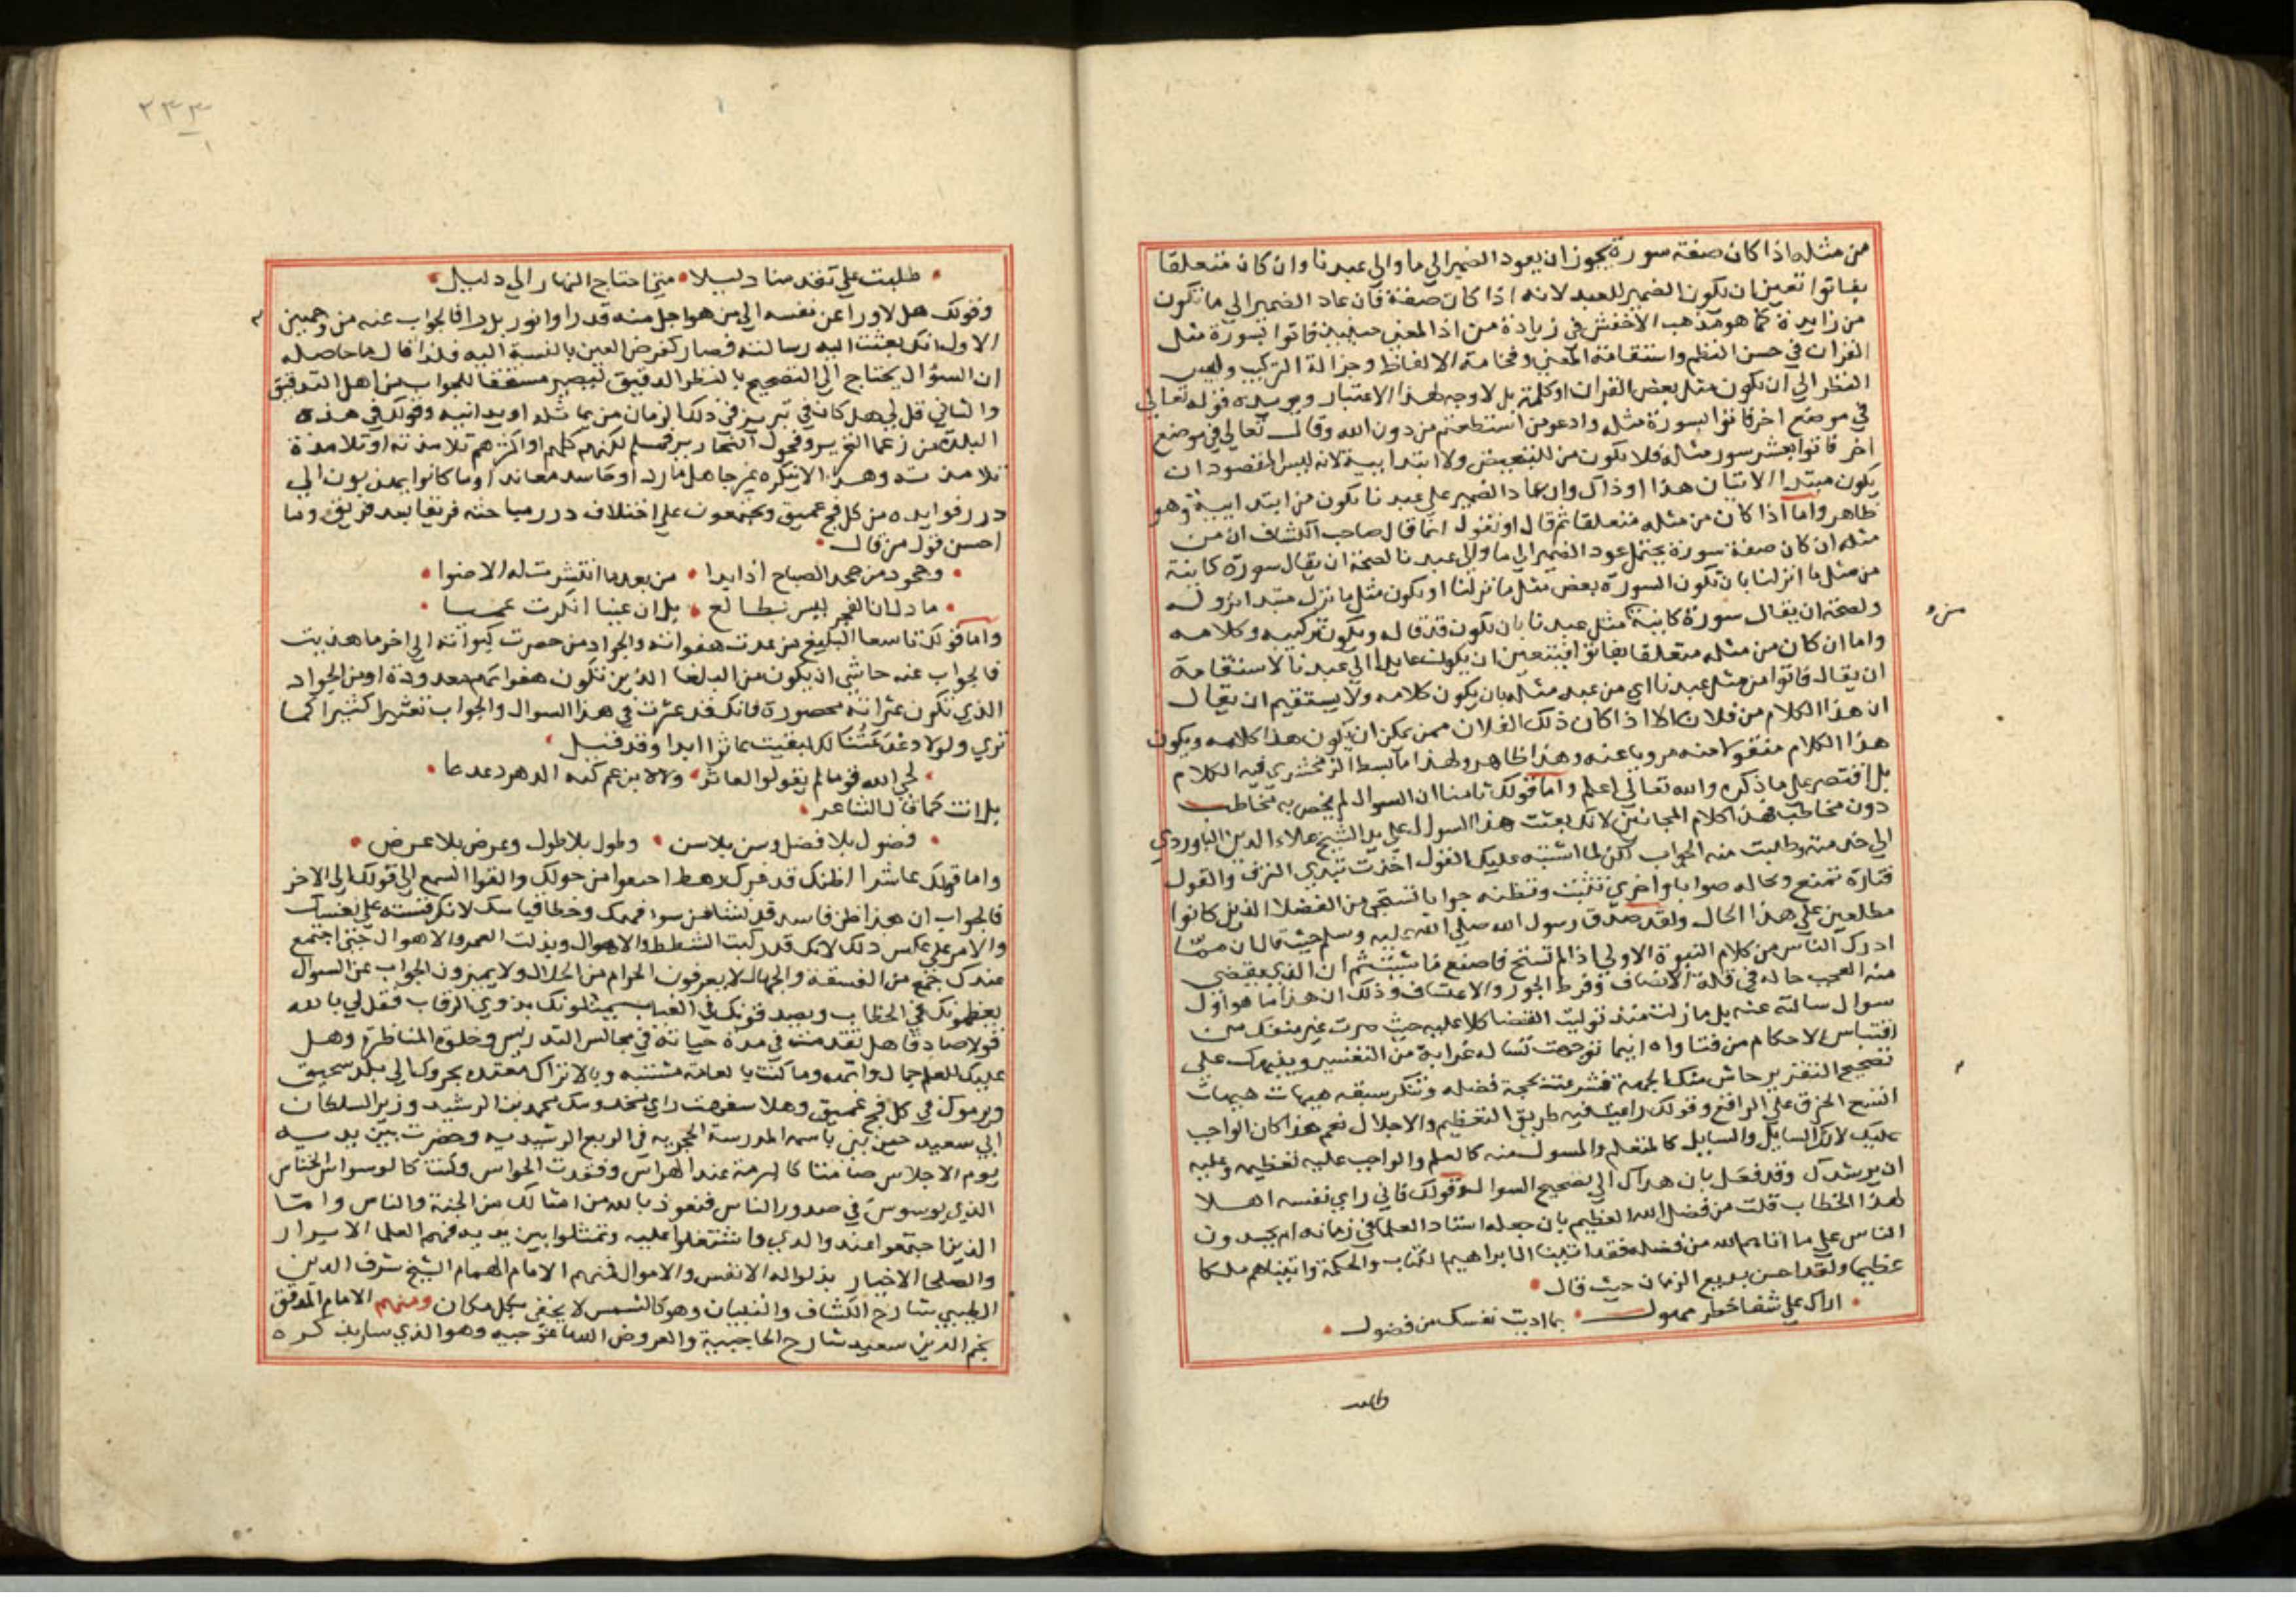 من مثله اذا كان صفة سورة يجوز ان يعود الضمير الي ما والي عبدنا وان كان متعلقا
بفاتوا تعين ان يكون الضمير للعبد لانه اذا كان صفة فان عاد الضمير الي ما تكون
من زايدة كما هو مذهب الاخفش في زيادة من اذ المعني حينيذ فاتوا بسورة مثل
القران في حسن النظم واستقامة المعني وفخامة الالفاظ وجزالة التركيب وليس
النظر الي ان يكون مثل بعض القران او كلمة بل لا وجه لهذا الاعتبار ويويده قوله تعالي
في موضع اخر فاتوا بسورة مثله وادعوا من استطعتم من دون الله وقال تعالي في موضع
اخر فاتوا بعشر سور مثله فلا يكون من للتبعيض ولا ابتدايية لانه ليس المقصود ان
يكون مبتدا الاتيان هذا او ذاك وان عاد الضمير علي عبدنا يكون من ابتدايية وهو
ظاهر واما اذا كان من مثله متعلقا ثم قال او نقول انما قال صاحب الكشاف ان من
مثله ان كان صفة سورة يحتمل عود الضمير الي ما والي عبدنا لصحة ان يقال سورة كاينة
من مثل ما انزلنا بان تكون السورة بعض مثل ما نزلنا او يكون مثل ما نزل مبتدا نزوله
ولصحة ان يقال سورة كاينة مثل عبدنا بان يكون قد قاله ويكون تركيبه وكلامه
من و
واما ان كان من مثله متعلقا بفاتوا فيتعين ان يكون عايدا الي عبدنا لاستقامة
ان يقال فاتوا من مثل عبدنا اي من عبد مثله بان يكون كلامه ولا يستقيم ان يقال
ان هذا الكلام من فلان الا اذا كان ذلك الفلان ممن يمكن ان يكون هذا كلامه ويكون
هذا الكلام منقولا منه مرويا عنه وهذا ظاهر ولهذا ما بسط الزمخشري فيه الكلام
بل اقتصر علي ما ذكره والله تعالي اعلم واما قولك ثامنا ان السوال لم يخص به مخاطب
دون مخاطب فهذا كلام المجانين لانك بعثت هذا السوال علي يد الشيخ علاء الدين الباوردي
الي خدمته وطلبت منه الجواب لكن لما اشتبه عليك القول اخذت تبدي النزق والقول
فتارة تمنع وتخاله صوابا واخري تثبت وتظنه جوابا تستحي من الفضلا الذين كانوا
مطلعين علي هذا الحال ولقد صدق رسول الله صلي الله عليه وسلم حيث قال ان مما
ادرك الناس من كلام النبوة الاولي اذا لم تستح فاصنع ما شيت ثم ان الذي يقضي
منه العجب حاله في قلة الانصاف وفرط الجور والاعتساف وذلك ان هذا ما هو اول
سوال سالته عنه بل ما زلت منذ توليت القضا كلا عليه حيث صرت غير منفك من
اقتباس الاحكام من فتاواه اينما توجهت تساله غرايبة من التفسير وينبهك علي
تصحيح التقرير حاش منك الجهة فشرعت بحجة فضله وتنكر سبقه هيهات هيهات
اتسع الخرق علي الراقع وقولك راعيت فيه طريق التعظيم والاجلال نعم هذا كان الواجب
عليك لانك السايل والسايل كالمتعلم والمسول منه كالمعلم والواجب عليه تعظيمه وعليه
ان يرشدك وقد فعل بان هداك الي تصحيح السوال وقولك فاني راي نفسه اهلا
لهذا الخطاب قلت من فضل الله العظيم بان جعله استاد العلما في زمانه ام يحسدون
الناس علي ما اتاهم الله من فضله فقد اتينا ال ابراهيم الكتاب والحكمة واتيناهم ملكا
عظيما ولقد احسن بديع الزمان حيث قال
اراك علي شفا خطر مهول بما اديت نفسك من فضول
طلبت
٢٣٣
طلبت علي تقدمنا دليلا متي احتاج النهار الي دليل
وقولك هل لا ورا عن نفسه الي من هو اجل منه قدرا وانور بدرا فالجواب عنه من وجهين
الاول انك بعثت اليه رسالته فصار كفرض العين بالنسبة اليه فلذا قال ما حاصله
ان السوال يحتاج الي التصحيح بالنظر الدقيق ليصير مستحقا للجواب من اهل التدقيق
والثاني قل لي هل كان في تبريز في ذلك الزمان من يماثله او يدانيه وقولك في هذه
البلدة من زعما التحرير وفحول النحارير فمسلم لكنهم كلهم او اكثرهم تلامذته او تلامذة
تلامذته وهذا لا ينكره غير جاهل مارد او حاسد معاند اوما كانوا يهذبون الي
درر فوايده من كل فج عميق ويجتمعون علي اختلاف درر مباحثه فريقا بعد فريق وما
احسن قول من قال
وجحود من جحد الصباح اذا بدا من بعد ما انتشرت له الاضوا
ما دل ان الفجر ليس بطالع بل ان عينا انكرت عميا
واما قولك تاسعا البليغ من عدت هفواته والجواد من حصرت كبواته الي اخر ما هذيت
فالجواب عنه حاشي ان يكون من البلغا الذين تكون هفواتهم معدودة او من الجواد
الذي تكون عثراته محصورة فانك قد عثرت في هذا السوال والجواب تعثيرا كثيرا كما
تري ولولا دعدعتنا لك لبقيت عاثرا ابدا وقد قيل
لحي الله قوما لم يقولوا لعاثر ولا لابن عم كبه الدهر دعدعا
بل انت كما قال الشاعر
فضول بلا فضل وسن بلا سن وطول بلا طول وعرض بلا عرض
واما قولك عاشرا اظنك قد فرك رهط اجتمعوا من حولك والقوا السمع الي قولك الي الاخر
فالجواب ان هذا ظن فاسد قد نشا من سوء فهمك وخطا قياسك لانك قسته علي نفسك
والامر علي عكس ذلك لانك قد ركبت الشطط والاهوال وبذلت العمر والاموال حتي اجتمع
عندك جمع من الفسقة والجهال لا يعرفون الحرام من الحلال ولا يميزون الجواب عن السوال
يعظمونك في الخطاب ويصدقونك في الغياب يمثلونك بذوي الرقاب فقل لي بالله
قولا صادقا هل تقدمت في مدة حياته في مجالس التدريس وحلوة المناظرة وهل
عليك للعلم جمال وابهة وما كنت بالعامة متشبه وبالاتراك معتمده يجروك الي بلد سحيق
ويرموك في كل فج عميق وهلا سفهت راي مخدومك محمد بن الرشيد وزير السلطان
ابي سعيد حين بني باسمه المدرسة الحجرية في الربع الرشيدية وحضرت بين يديه
يوم الاجلاس صامتا كالبرمة عند الهراس وفقدت الحواس وكنت كالوسواس الخناس
الذي يوسوس في صدور الناس فنعوذ بالله من امثالك من الجنة والناس واما
الذين اجتمعوا عند والدي واشتغلوا عليه وتمثلوا بين يديه فهم العلما الابرار
والصلحا الاخيار بذلوا له الانفس والاموال فمنهم الامام الهمام الشيخ شرف الدين
الطيبي شارح الكشاف والتبيان وهو كالشمس لا يخفي بكل مكان ومنهم الامام المدقق
نجم الدين سعيد شارح الحاجبية والعروض الساوجية وهو الذي سار بذكره